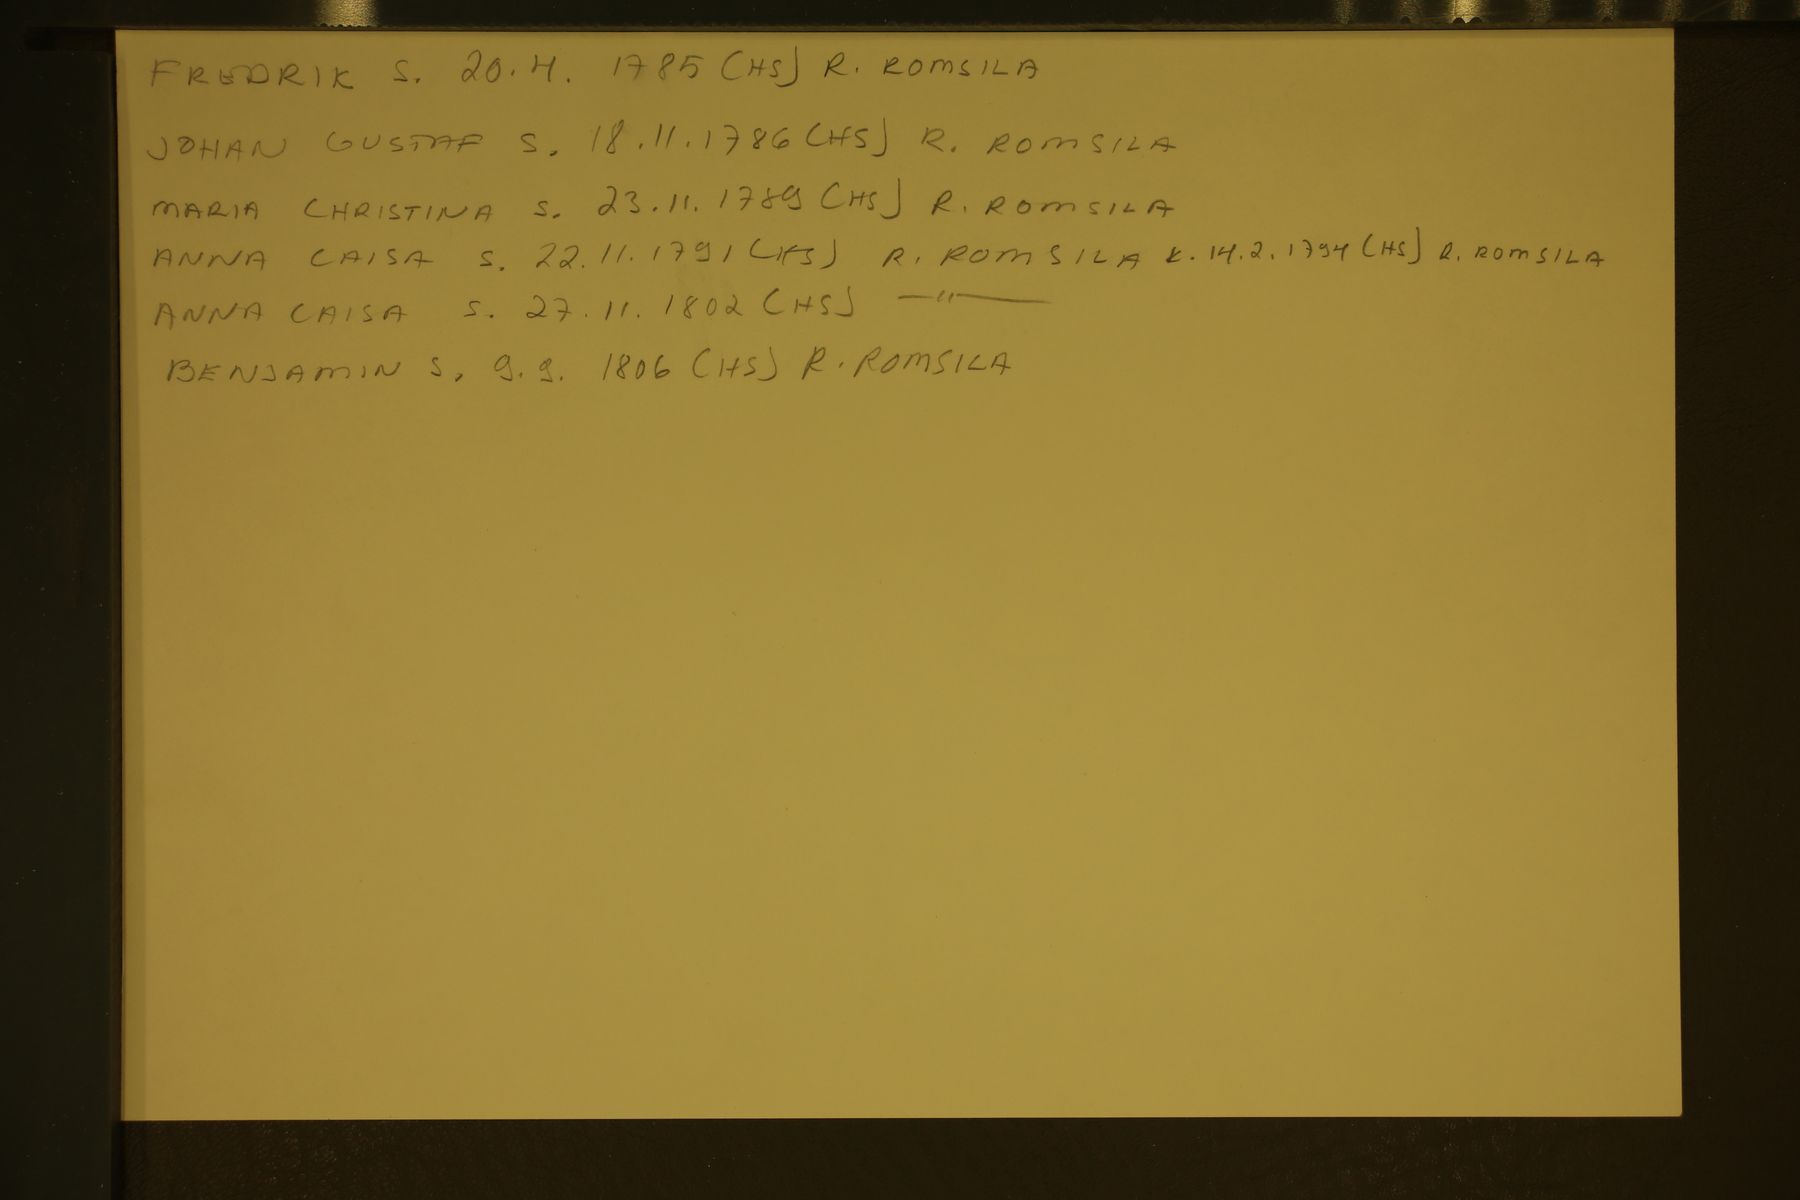 FREDRIK S. 20.4. 1785 (HS) R. ROMSILA
JOHAN GUSTAF S. 18.11.1786 (HS) R. ROMSILA
MARIA CHRISTINA S. 23.11.1789 (HS) R. ROMSILA
ANNA CAISA S. 22.11.1791 (HS) R. ROMSILA K. 14.2.1794 (HS) R. ROMSILA
ANNA CAISA S. 27.11.1802 (HS) —"—
BENJAMIN S. 9.9. 1806 (HS) R. ROMSILA